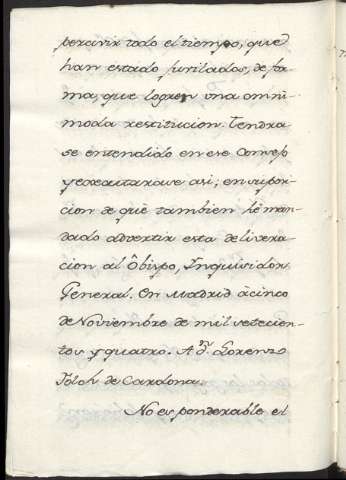 percivir todo el tiempo, que
han estado jurilados, de for
ma, que logren una omni
moda restitucion. Tendra
se entendido en ese Consejo
y executarase asi; en supoci
cion de què tambien hè man
dado advertir esta delivera
cion al Obispo, Inquisidor
General. En Madrid à cinco
de Noviembre de mil setecien
tos y quatro. A Dn. Lorenzo
Folch de Cardona.
No es ponderable el